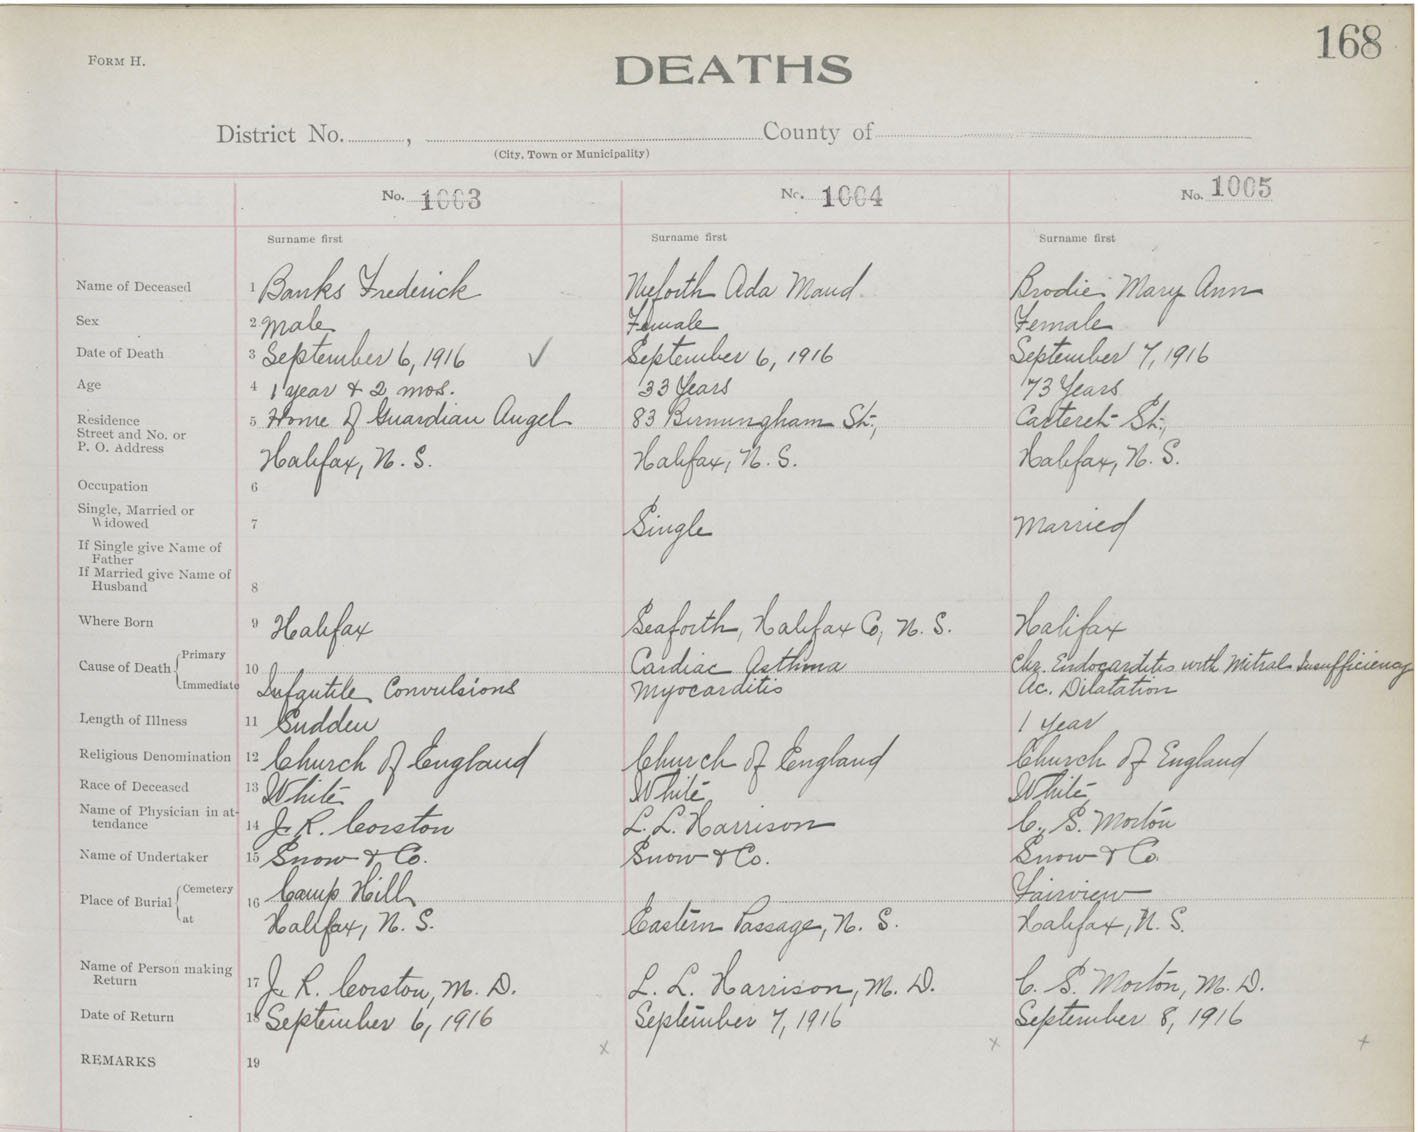 168
FORM H.
DEATHS
District No. , County of
(City, Town or Municipality)
No. 1003 No. 1004 No. 1005
Surname first Surname first Surname first
Name of Deceased 1 Banks Frederick Nieforth Ada Maud Brodie Mary Ann
Sex 2 Male Female Female
Date of Death 3 September 6, 1916 ✓ September 6, 1916 September 7, 1916
Age 4 1 year & 2 mos. 33 Years 73 Years
Residence 5 Home of Guardian Angel 83 Birmingham St., Carteret St.,
Street and No. or
P. O. Address Halifax, N. S. Halifax, N. S. Halifax, N. S.
Occupation 6
Single, Married or
Widowed 7 Single Married
If Single give Name of
Father
If Married give Name of
Husband 8
Where Born 9 Halifax Seaforth, Halifax Co, N. S. Halifax
Cause of Death Primary 10 Cardiac Asthma Chr. Endocarditis with Mitral Insufficiency
Immediate Infantile Convulsions Myocarditis Ac. Dilatation
Length of Illness 11 Sudden 1 year
Religious Denomination 12 Church of England Church of England Church of England
Race of Deceased 13 White White White
Name of Physician in at-
tendance 14 J. R. Corston L. L. Harrison C. S. Morton
Name of Undertaker 15 Snow & Co. Snow & Co. Snow & Co.
Place of Burial Cemetery 16 Camp Hill Fairview
at Halifax, N. S. Eastern Passage, N. S. Halifax, N. S.
Name of Person making
Return 17 J. R. Corston, M. D. L. L. Harrison, M. D. C. S. Morton, M. D.
Date of Return 18 September 6, 1916 September 7, 1916 September 8, 1916
x x x
REMARKS 19